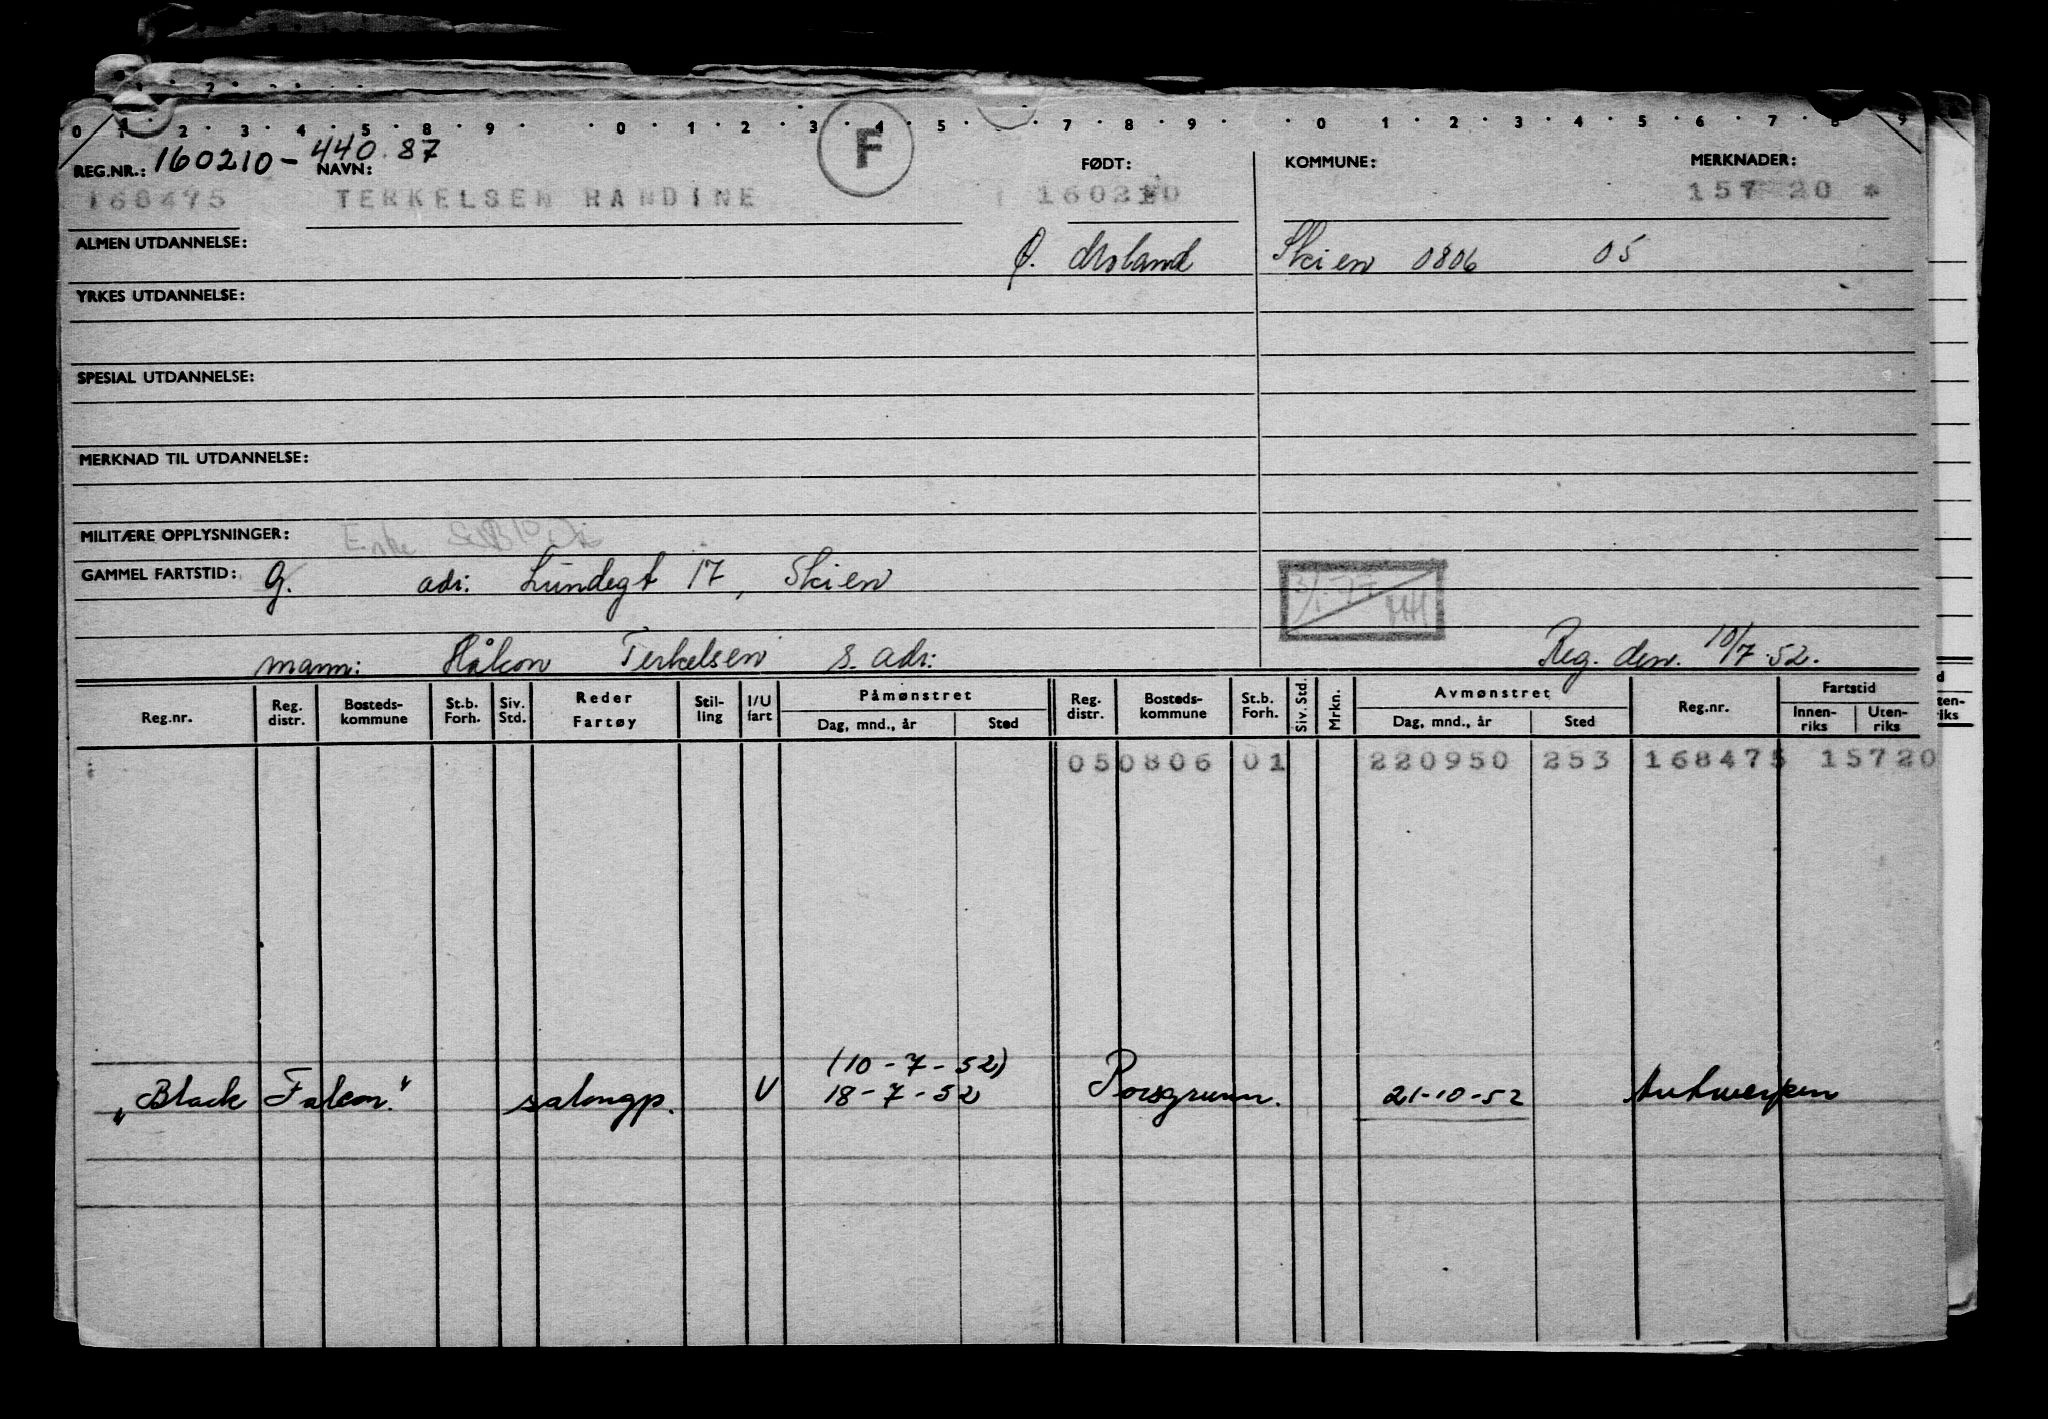 0 1 2 3 4 5 8 9 0 1 2 3 4 5 7 8 9 0 1 2 3 4 5 6 7 8 9
REG.NR.: 160210-440.87 NAVN: F FØDT: KOMMUNE: MERKNADER:
168475 TERKELSEN RANDINE 160210 157 20 *
ALMEN UTDANNELSE: Ø. Moland Skien 0806 05
YRKES UTDANNELSE:
SPESIAL UTDANNELSE:
MERKNAD TIL UTDANNELSE:
MILITÆRE OPPLYSNINGER: Enke
GAMMEL FARTSTID: G. adr: Lundegt 17, Skien
mann: Håkon Terkelsen s. adr: Reg. den. 10/7.52.
Reg.nr. Reg. distr. Bosteds-kommune St.b. Forh. Siv. Std. Reder Fartøy Stil-ling I/U fart Påmønstret Dag, mnd., år Sted Reg. distr. Bosteds-kommune St.b. Forh. Siv. Std. Mrkn. Avmønstret Dag, mnd., år Sted Reg.nr. Fartstid Innen-riks Uten-riks
050806 01 220950 253 168475 15720
(10-7-52)
"Black Falcon." salongp. U 18-7-52 Porsgrunn. 21-10-52 Antwerpen